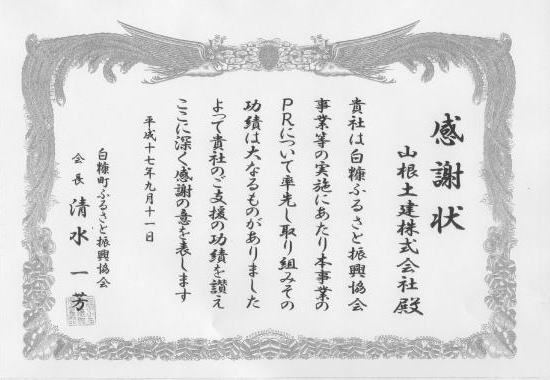 感謝状
山根土建株式会社殿
貴社は白糠ふるさと振興協会
事業等の実施にあたり本事業の
PRについて率先し取り組みその
功績は大なるものがありました
よって貴社のご支援の功績を讃え
ここに深く感謝の意を表します
平成十七年九月十一日
白糠町ふるさと振興協会
会長 清水一芳